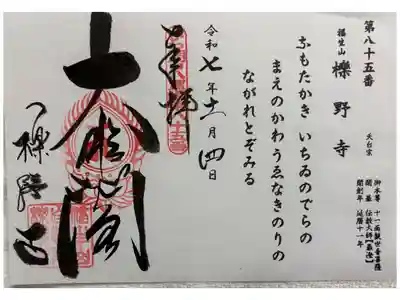 第八十五番
福生山 櫟野寺 天台宗
御本尊 十一面観世音菩薩
開基 伝教大師【最澄】
開創年 延暦十一年
なもたかき いちゐのでらの
まえのかわうゑなきのりの
ながれとぞみる
令和七年十一月四日
奉拝
櫟野寺